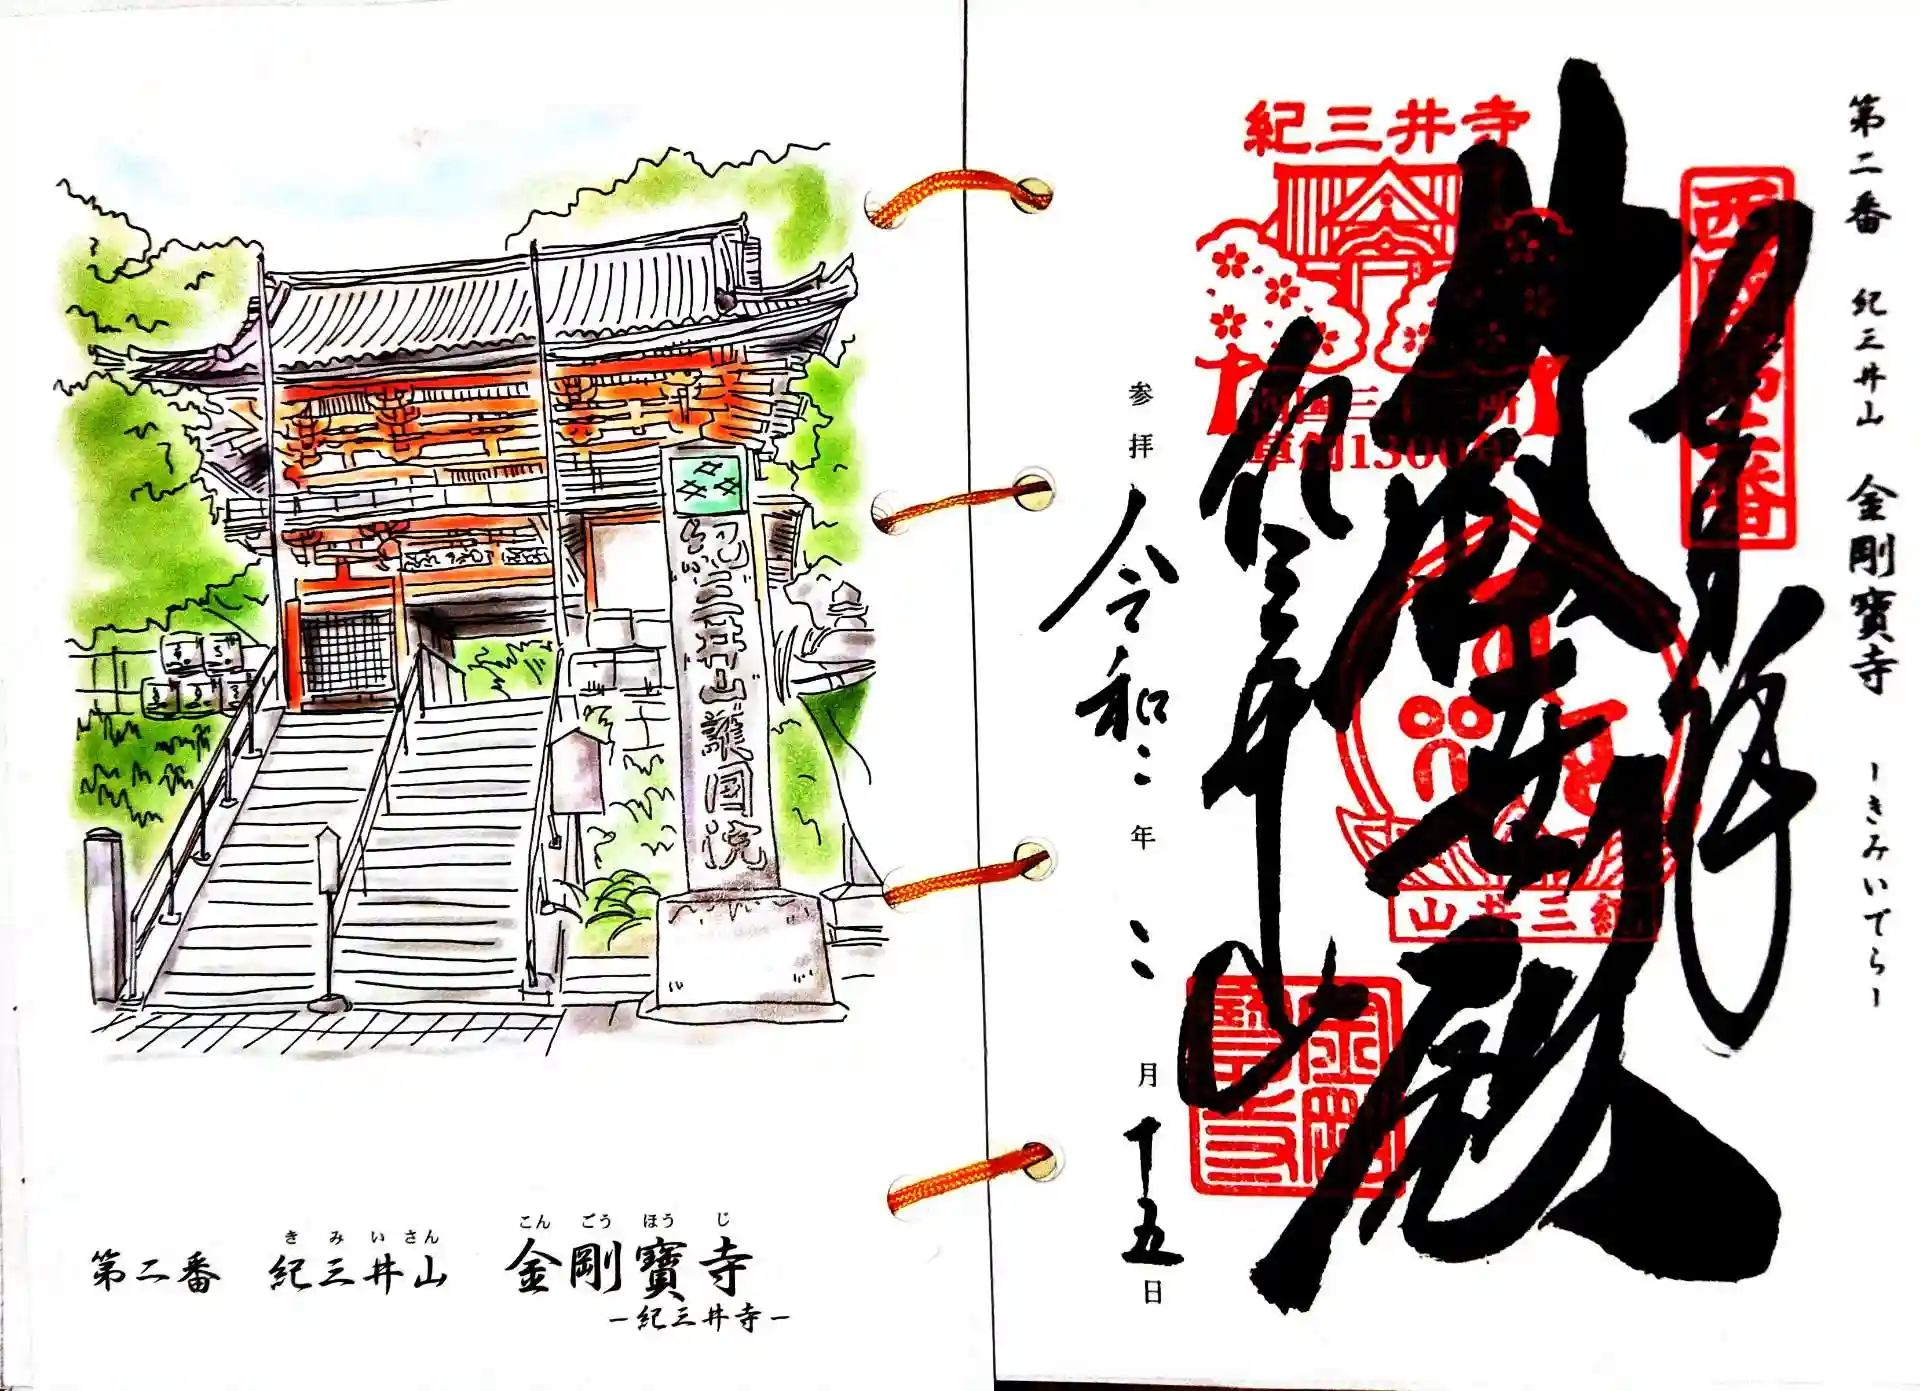 紀三井山護国院
きみいさん こんごうほうじ
第二番 紀三井山 金剛寶寺
ー紀三井寺ー
第二番 紀三井山 金剛寶寺 ーきみいでらー
西国第二番
奉拝
救世殿
紀三井寺
紀三井寺
西国三十三所
草創1300年
紀三井山
参拝 令和二年 二月十五日